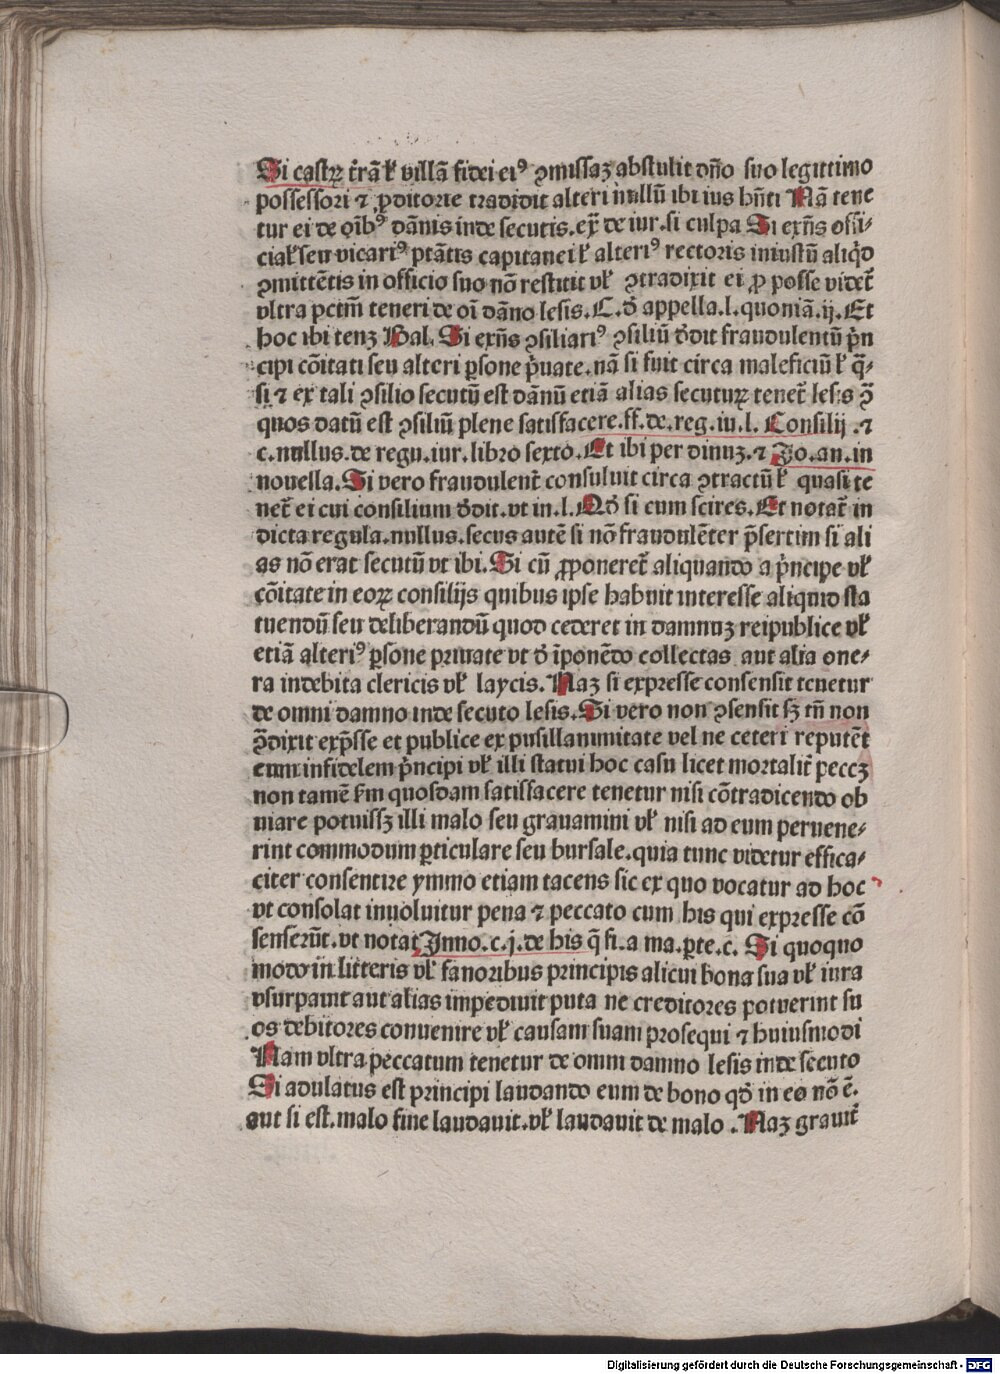 Si castꝝ t̄rā ł villā fidei ei⁹ ꝯmissaꝫ abstulit dn̄o suo legittimo
possessori ⁊ ꝓditorie tradidit alteri nullū ibi ius hn̄ti Nā tene
tur ei de oīb⁹ dānis inde secutis.ex̄ de iur.si culpa Si exn̄s offi⸗
cial̛ seu vicari⁹ ptātis capitanei ł alteri⁹ rectoris iniustū aliq̇d
ꝯmittētis in officio suo nō restitit vł ꝯtradixit ei ꝓ posse videt̄
vltra pctm̄ teneri de oī dāno lesis.C.d̄ appella.l.quoniā.ij.Et
hoc ibi tenꝫ Bal. Si exn̄s ꝯsiliari⁹ ꝯsiliū d̄dit fraudulentū p̄n
cipi cōitati seu alteri ꝑsone p̄uate.nā si fuit circa maleficiū ł q̄⸗
si ⁊ ex tali ꝯsilio secutū est dānū etiā alias secuturꝝ tenet̄ lesis ꝯ̄
quos datū est ꝯsiliū plene satisfacere.ff.de.reg.iu.l. Consilij .⁊
c.nullus.de regu.iur.libro sexto.Et ibi per dinuꝫ.⁊ Jo.an.in
nouella.Si vero fraudulent̄ consuluit circa ꝯtractū ł quasi te
net̄ ei cui consilium d̄dit.vt in.l.Qd̄ si cum scires.Et notat̄ in
dicta regula.nullus.secus autē si nō fraudulēter p̄sertim si ali
as nō erat secutū vt ibi.Si cū ꝓponeret̄ aliquando a p̄ncipe vł
cōitate in eoꝝ consilijs quibus ipse habuit interesse aliquid sta
tuendū seu deliberandū quod cederet in damnuꝫ reipublice vł
etiā alteri⁹ ꝑsone priuate vt d̄ īponēdo collectas aut alia one⸗
ra indebita clericis vł laycis.Naꝫ si expresse consensit tenetur
de omni damno inde secuto lesis.Si vero non ꝯsensit sꝫ tn̄ non
ꝯ̄dixit exp̄sse et publice ex pusillanimitate vel ne ceteri reputēt
eum infidelem p̄ncipi vł illi statui hoc casu licet mortalit̄ peccꝫ
non tamē ẜm quosdam satisfacere tenetur nisi cōtradicendo ob
uiare potuissꝫ illi malo seu grauamini vł nisi ad eum peruene⸗
rint commodum ꝑticulare seu bursale.quia tunc videtur effica⸗
citer consentire ymmo etiam tacens sic ex quo vocatur ad hoc
vt consolat inuoluitur pena ⁊ peccato cum his qui expresse cō
senserūt.vt notat Inno.c.j.de his q̄ fi.a ma.ꝑte.c. Si quoquo
modo in litteris vł fanoribus principis alicui bona sua vł iura
vsurpauit aut alias impediuit puta ne creditores potuerint su
os debitores conuenire vł causam suam prosequi ⁊ huiusmodi
Nam vltra peccatum tenetur de omni damno lesis inde secuto
Si adulatus est principi laudando eum de bono qd̄ in eo nō ē.
aut si est.malo fine laudauit.vł laudauit de malo .Naꝫ grauit̄
Digitalisierung gefördert durch die Deutsche Forschungsgemeinschaft - DFG